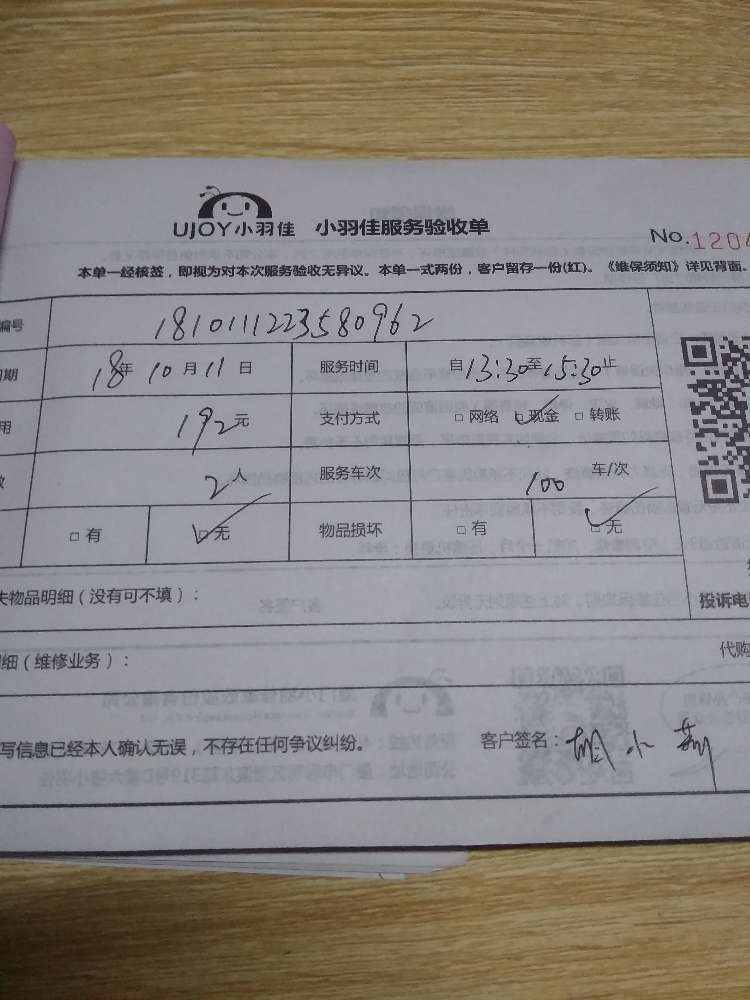 UJOY小羽佳 小羽佳服务验收单
No.1204
本单一经核签，即视为对本次服务验收无异议。本单一式两份，客户留存一份(红)。《维保须知》详见背面。
编号 181011223580962
期 18年10月11日 服务时间 自13:30至15:30止
用 192元 支付方式 □网络 □现金 □转账
数 2人 服务车次 100 车/次
□有 □无 物品损坏 □有 □无
失物品明细（没有可不填）：
投诉电
细（维修业务）：
代购
写信息已经本人确认无误，不存在任何争议纠纷。 客户签名：胡小莉